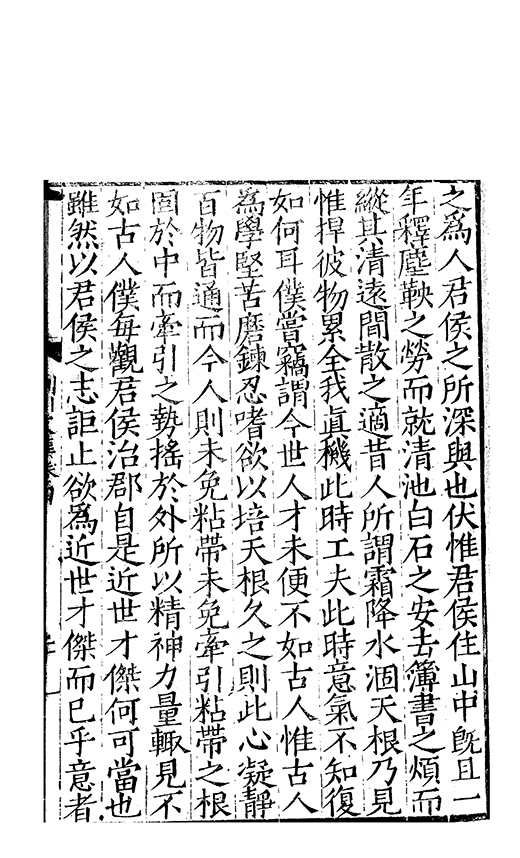 之爲人君侯之所深與也伏惟君侯住山中旣且一
年釋塵鞅之勞而就清池白石之安去簿書之煩而
縱其清遠閒散之適昔人所謂霜降水涸天根乃見
惟捍彼物累全我眞穖此時工夫此時意氣不知復
如何耳僕嘗竊謂今世人才未便不如古人惟古人
爲學堅苦磨鍊忍嗜欲以培天根久之則此心凝靜
百物皆通而今人則未免粘帶未免牽引粘帶之根
固於中而牽引之勢搖於外所以精神力量輙見不
如古人僕每觀君侯治郡自是近世才傑何可當也
雖然以君侯之志詎止欲爲近世才傑而已乎意者